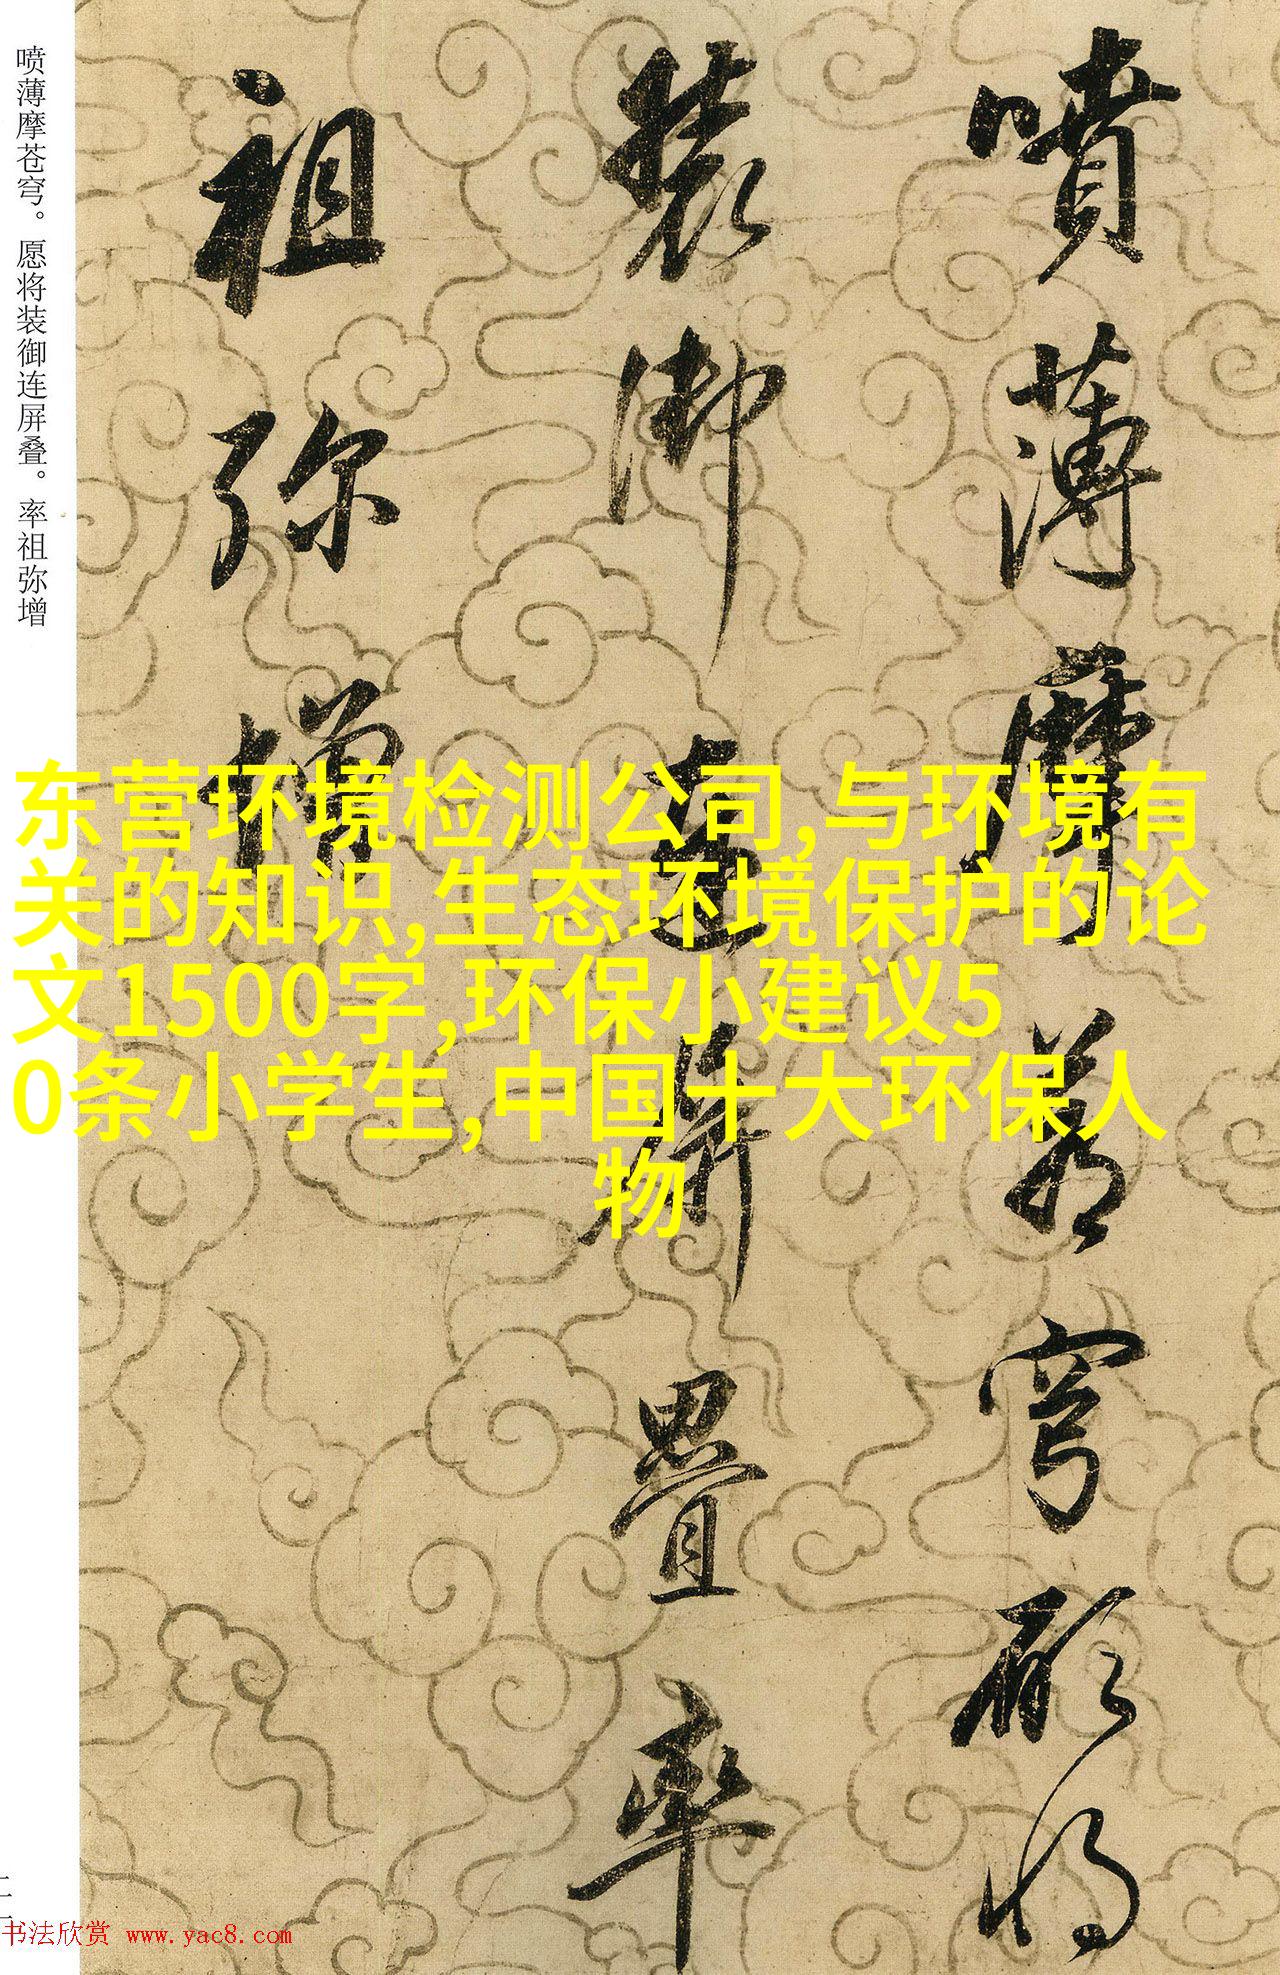 喷薄摩苍穹。愿将装御连屏叠。率祖弥增
噴薄摩蒼穹願將
裝御連屏疊率
祖弥增
东营环境检测公司,与环境有
关的知识,生态环境保护的论
文1500字,环保小建议5
0条小学生,中国十大环保人
物
书法欣赏 www.yac8.com